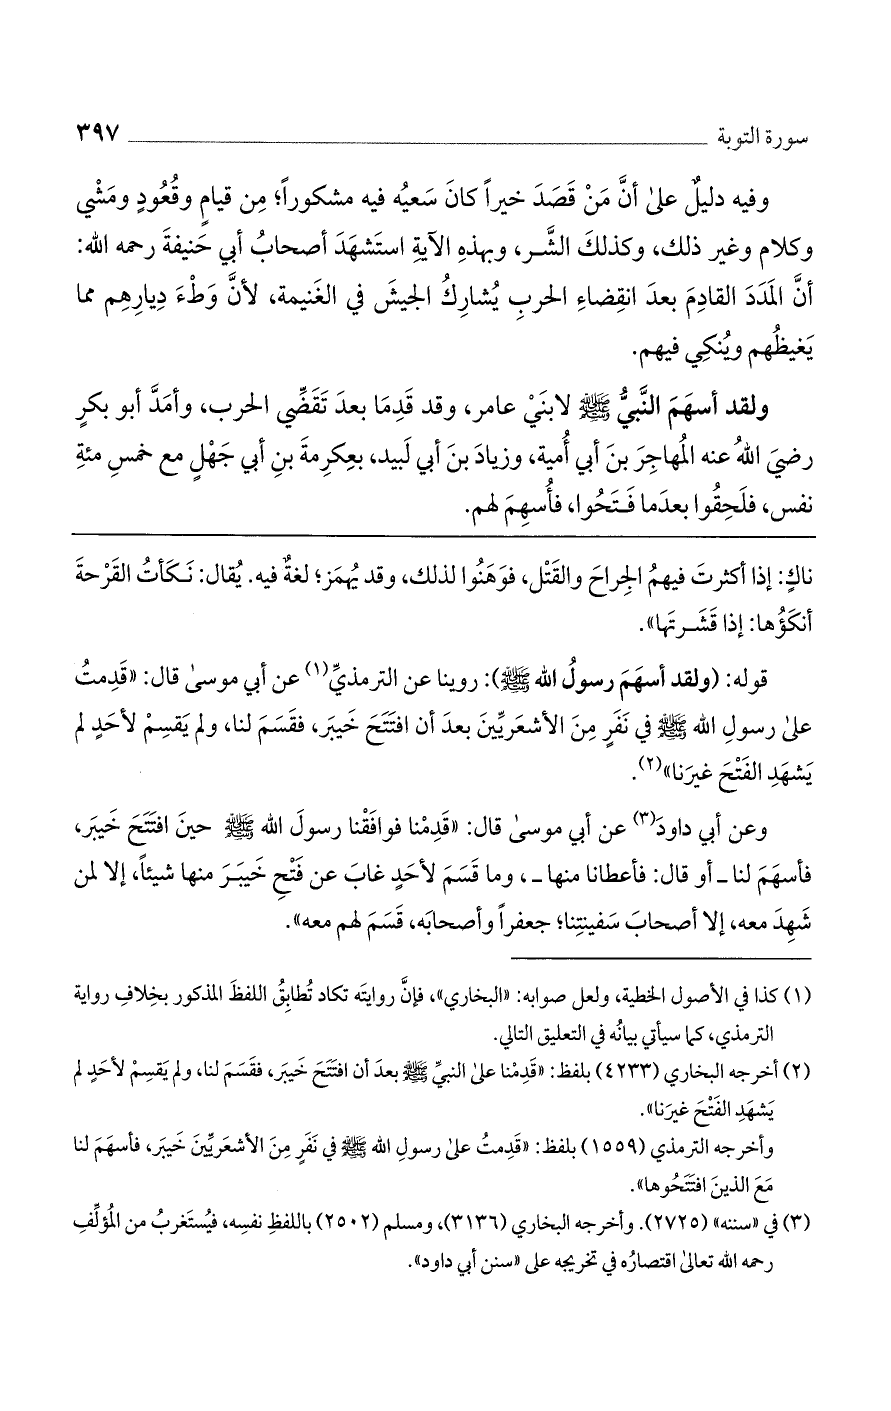 سورة التوبة ٣٩٧
وفيه دليلٌ علىٰ أنَّ مَنْ قَصَدَ خيراً كانَ سَعيُه فيه مشكوراً؛ مِن قيامٍ وقُعُودٍ ومَشْيٍ
وكلام وغير ذلك، وكذلكَ الشَّر، وبهذهِ الآيةِ استَشهَدَ أصحابُ أبي حَنيفةَ رحمه الله:
أنَّ المَدَدَ القادِمَ بعدَ انقِضاءِ الحربِ يُشارِكُ الجيشَ في الغَنيمة، لأنَّ وَطْءَ دِيارِهِم مما
يَغيظُهم ويُنكِي فيهم.
ولقد أسهَمَ النَّبيُّ ﷺ لابنَيْ عامر، وقد قَدِمَا بعدَ تَقَضِّي الحرب، وأمَدَّ أبو بكرٍ
رضيَ اللهُ عنه المُهاجِرَ بنَ أبي أُمية، وزيادَ بنَ أبي لَبيد، بعِكرِمةَ بنِ أبي جَهْلٍ مع خمسِ مئةِ
نفس، فلَحِقُوا بعدَما فَتَحُوا، فأُسهِمَ لهم.
ناكٍ: إذا أكثرتَ فيهمُ الجِراحَ والقَتْل، فوَهَنُوا لذلك، وقد يُهمَز؛ لغةٌ فيه. يُقال: نَكَأتُ القَرْحةَ
أنكَؤُها: إذا قَشَرتَها».
قوله: (ولقد أسهَمَ رسولُ الله ﷺ): روينا عن الترمذيِّ(١) عن أبي موسىٰ قال: «قَدِمتُ
علىٰ رسولِ الله ﷺ في نَفَرٍ مِنَ الأشعَريِّينَ بعدَ أن افتَتَحَ خَيبَر، فقَسَمَ لنا، ولم يَقسِمْ لأحَدٍ لم
يَشهَدِ الفَتْحَ غيرَنا»(٢).
وعن أبي داودَ(٣) عن أبي موسىٰ قال: «قَدِمْنا فوافَقْنا رسولَ الله ﷺ حينَ افتَتَحَ خَيبَر،
فأسهَمَ لنا ـ أو قال: فأعطانا منها ـ، وما قَسَمَ لأحَدٍ غابَ عن فَتْحِ خَيبَرَ منها شيئاً، إلا لمن
شَهِدَ معه، إلا أصحابَ سَفينتِنا؛ جعفراً وأصحابَه، قَسَمَ لهم معه».
(١) كذا في الأصول الخطية، ولعل صوابه: «البخاري»، فإنَّ روايتَه تكاد تُطابِقُ اللفظَ المذكور بخِلافِ رواية
الترمذي، كما سيأتي بيانُه في التعليق التالي.
(٢) أخرجه البخاري (٤٢٣٣) بلفظ: «قَدِمْنا علىٰ النبيِّ ﷺ بعدَ أن افتَتَحَ خَيبَر، فقَسَمَ لنا، ولم يَقسِمْ لأحَدٍ لم
يَشهَدِ الفَتْحَ غيرَنا».
وأخرجه الترمذي (١٥٥٩) بلفظ: «قَدِمتُ علىٰ رسولِ الله ﷺ في نَفَرٍ مِنَ الأشعَريِّينَ خَيبَر، فأسهَمَ لنا
مَعَ الذينَ افتَتَحُوها».
(٣) في «سننه» (٢٧٢٥). وأخرجه البخاري (٣١٣٦)، ومسلم (٢٥٠٢) باللفظِ نفسِه، فيُستَغربُ من المُؤلِّفِ
رحمه الله تعالىٰ اقتصارُه في تخريجه على «سنن أبي داود».